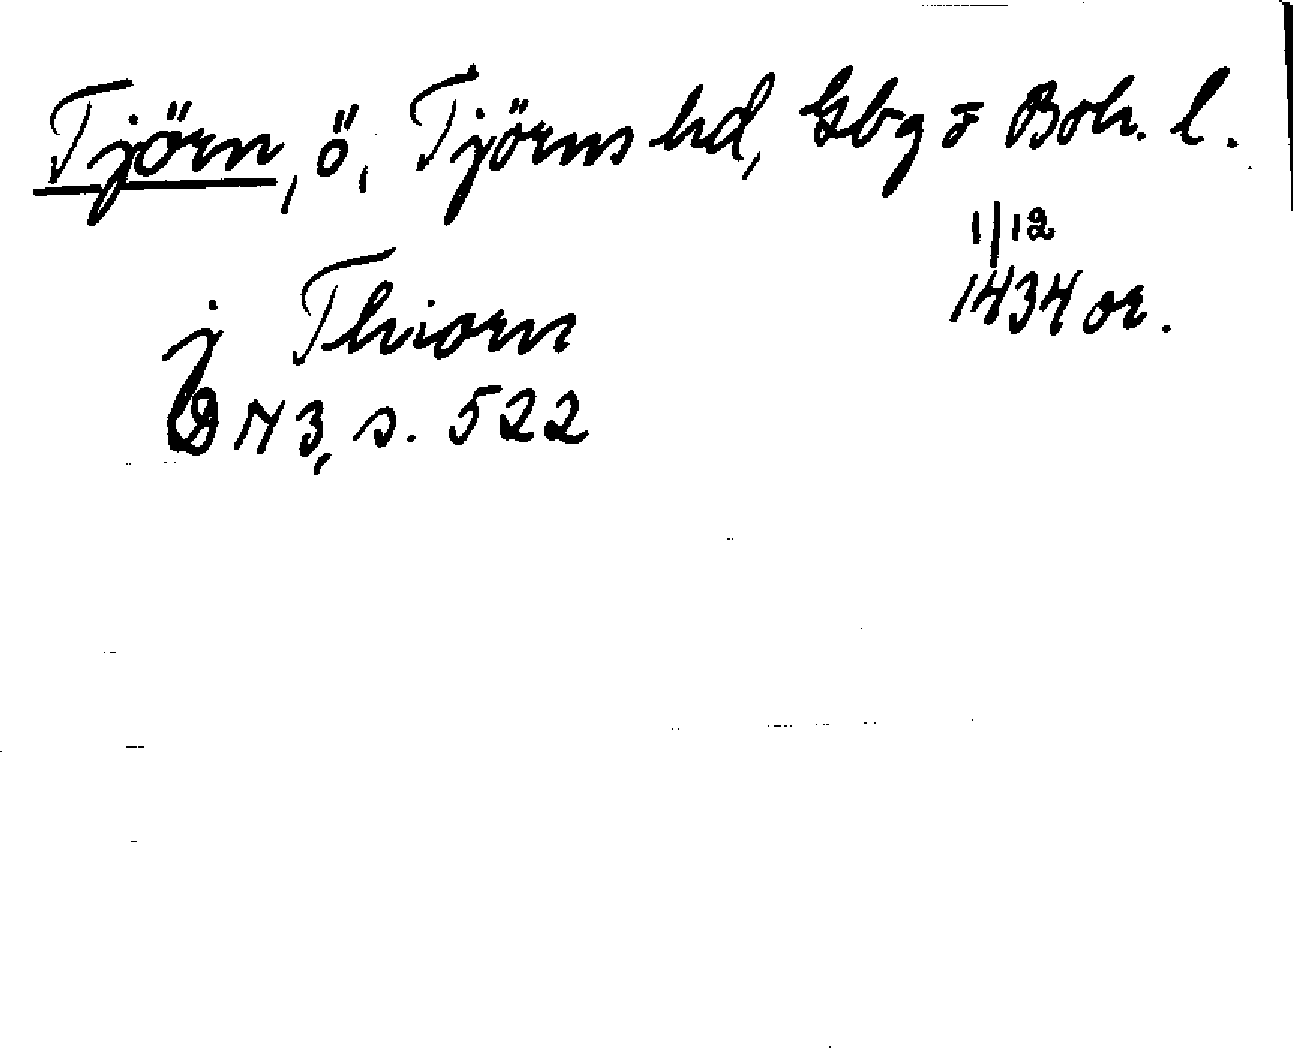 Tjörn, ö, Tjörns hd, Gbg o Boh. l.
1/12
j Thiorn 1434 or.
DN 3, s. 522